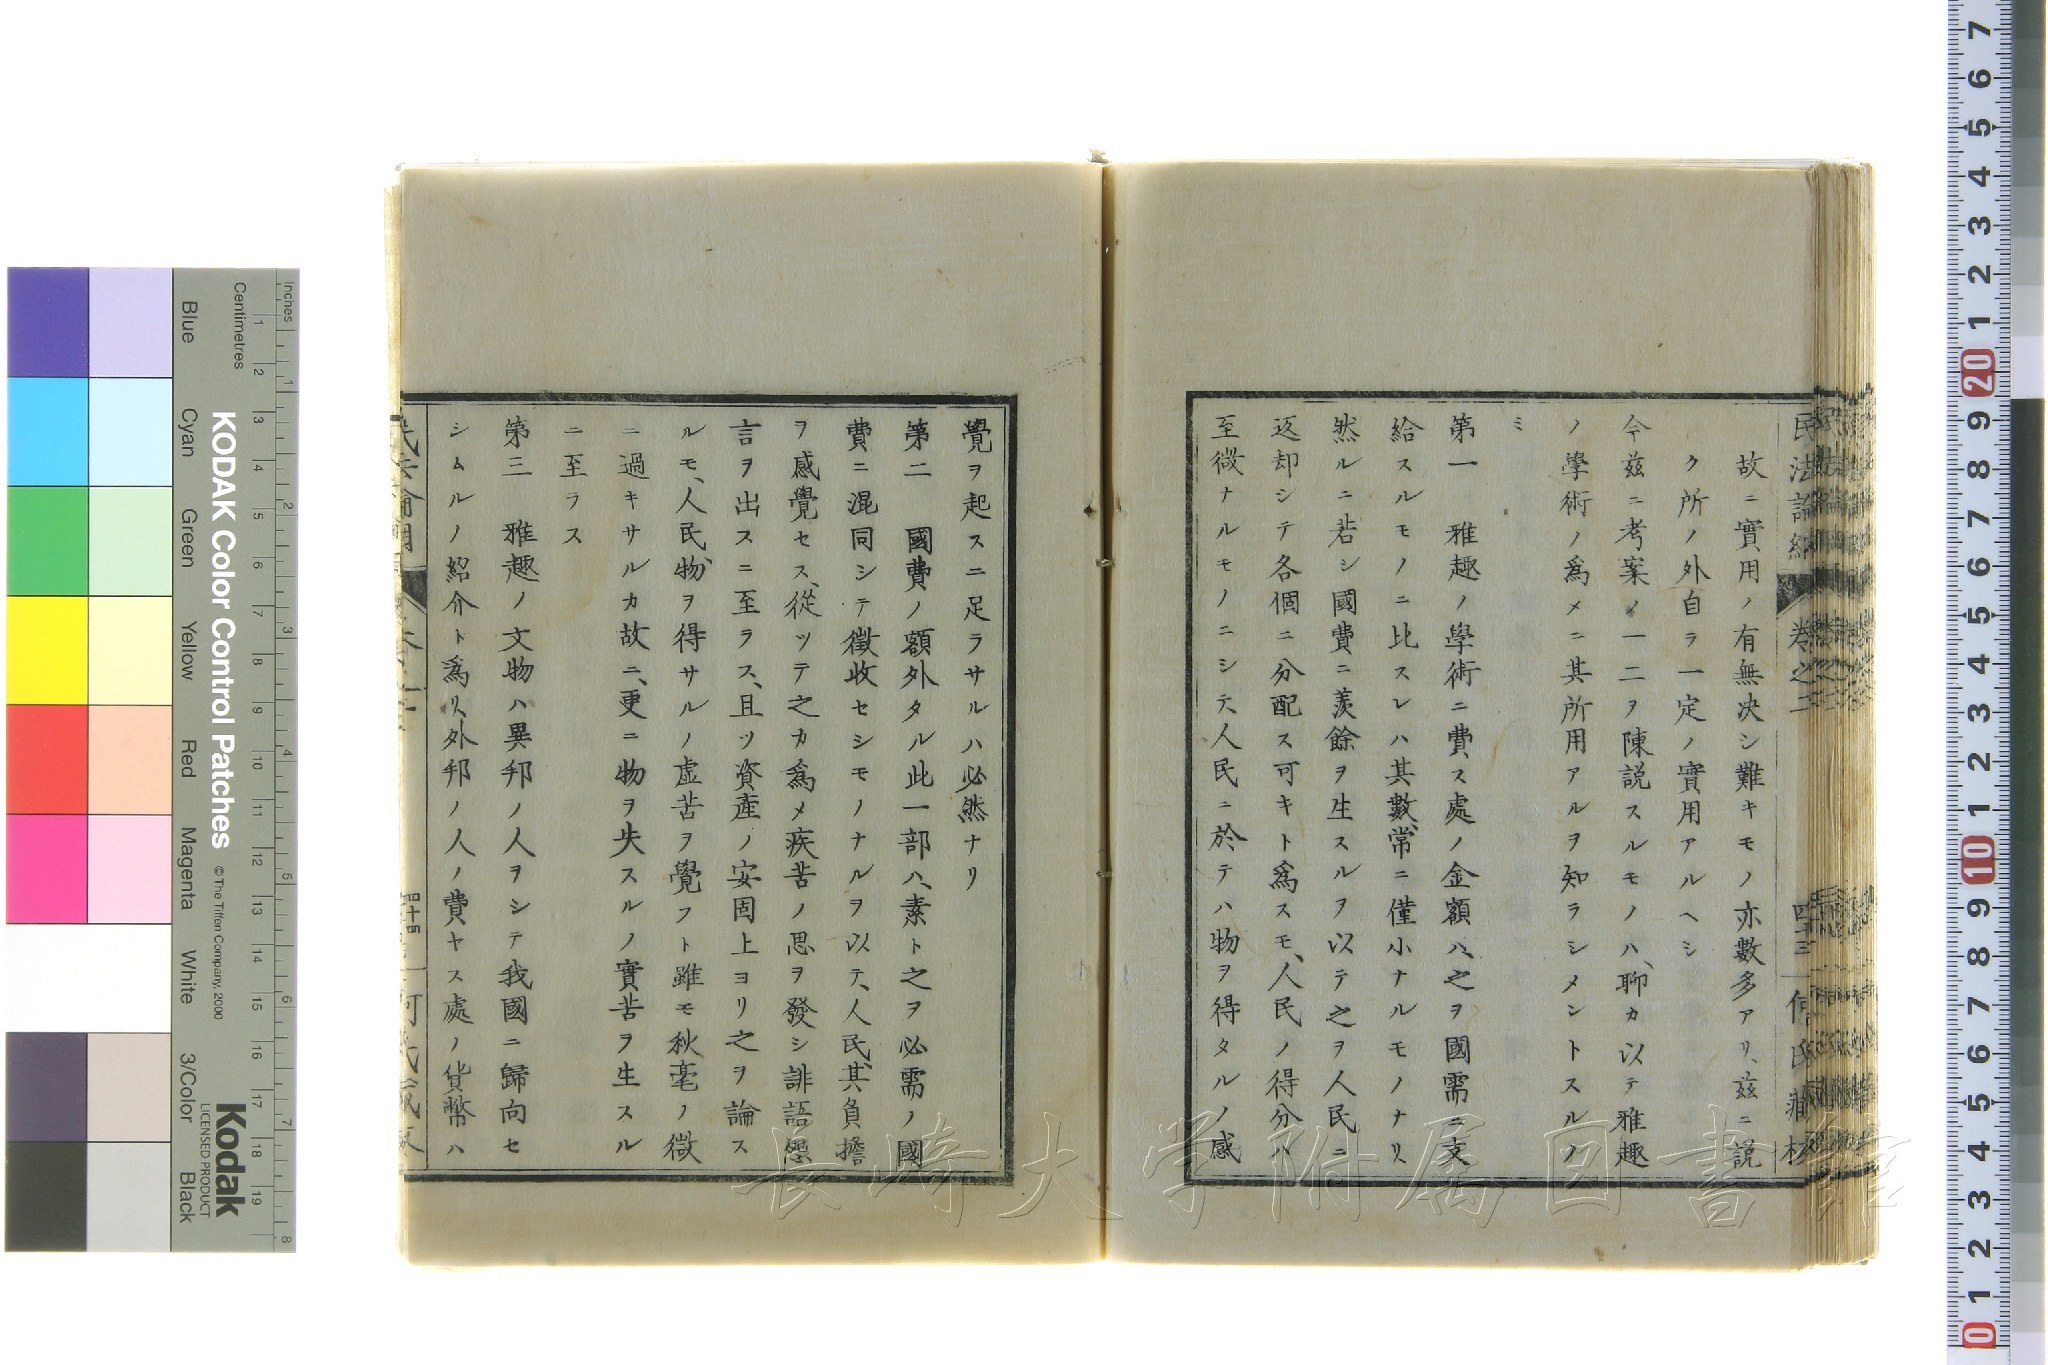 民法論綱 卷之二 四十三 何氏藏板
故ニ實用ノ有無決シ難キモノ亦數多アリ、茲ニ説
ク所ノ外自ラ一定ノ實用アルヘシ
今茲ニ考案ノ一二ヲ陳説スルモノハ、聊カ以テ雅趣
ノ學術ノ爲メニ其所用アルヲ知ラシメントスルノ
ミ
第一 雅趣ノ學術ニ費ス處ノ金額ハ、之ヲ國需ニ支
給スルモノニ比スレハ其數、常ニ僅小ナルモノナリ、
然ルニ若シ國費ニ羨餘ヲ生スルヲ以テ之ヲ人民ニ
返却シテ各個ニ分配ス可キト爲スモ、人民ノ得分ハ
至微ナルモノニシテ、人民ニ於テハ物ヲ得タルノ感
覺ヲ起スニ足ラサルハ必然ナリ
第二 國費ノ額外タル此一部ハ、素ト之ヲ必需ノ國
費ニ混同シテ徴收セシモノナルヲ以テ、人民、其負擔
ヲ感覺セス、從ツテ之カ爲メ疾苦ノ思ヲ發シ誹語怨
言ヲ出スニ至ラス、且ツ資產ノ安固上ヨリ之ヲ論ス
ルモ、人民、物ヲ得サルノ虛苦ヲ覺フト雖モ秋毫ノ微
ニ過キサルカ故ニ、更ニ物ヲ失スルノ實苦ヲ生スル
ニ至ラス
第三 雅趣ノ文物ハ異邦ノ人ヲシテ我國ニ歸向セ
シムルノ紹介ト爲リ、外邦ノ人ノ費ヤス處ノ貨幣ハ
四十四
長崎大学附属図書館
Inches
Centimetres
KODAK Color Control Patches
© The Tiffen Company, 2000
Kodak
LICENSED PRODUCT
Blue
Cyan
Green
Yellow
Red
Magenta
White
3/Color
Black